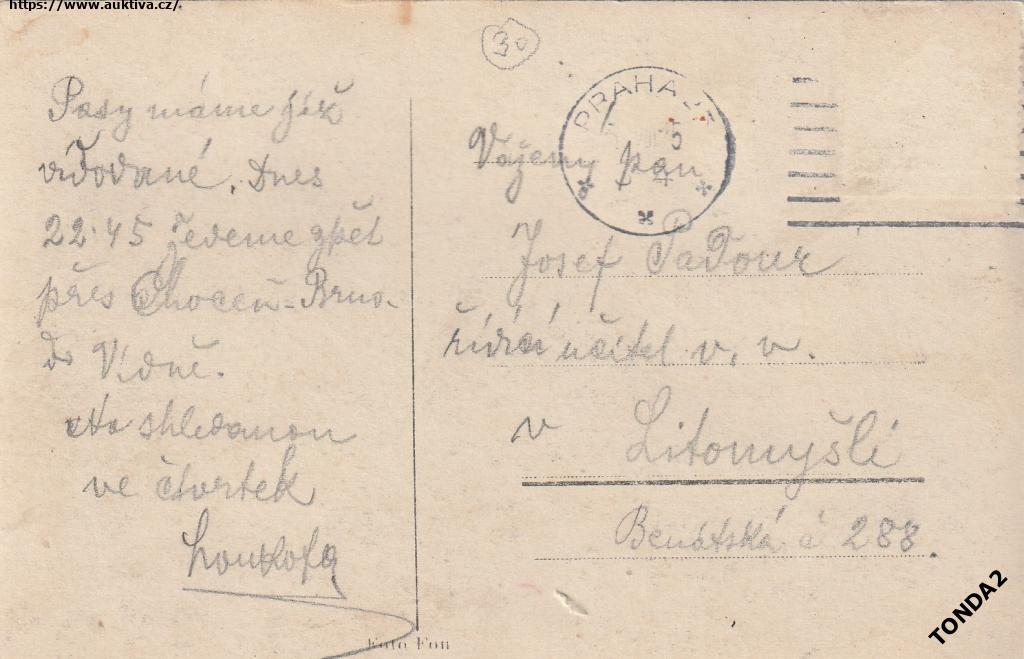 https://www.auktiva.cz/
30
PRAHA
Pasy máme již
vidované. Dnes
22.45 jedeme zpět
přes Choceň-Brno-
do Vídně.
Na shledanou
ve čtvrtek
Vážený pan
Josef Paďour
řídící učitel v. v.
v Litomyšli
Benátská č 288.
Foto Fon
TONDA2